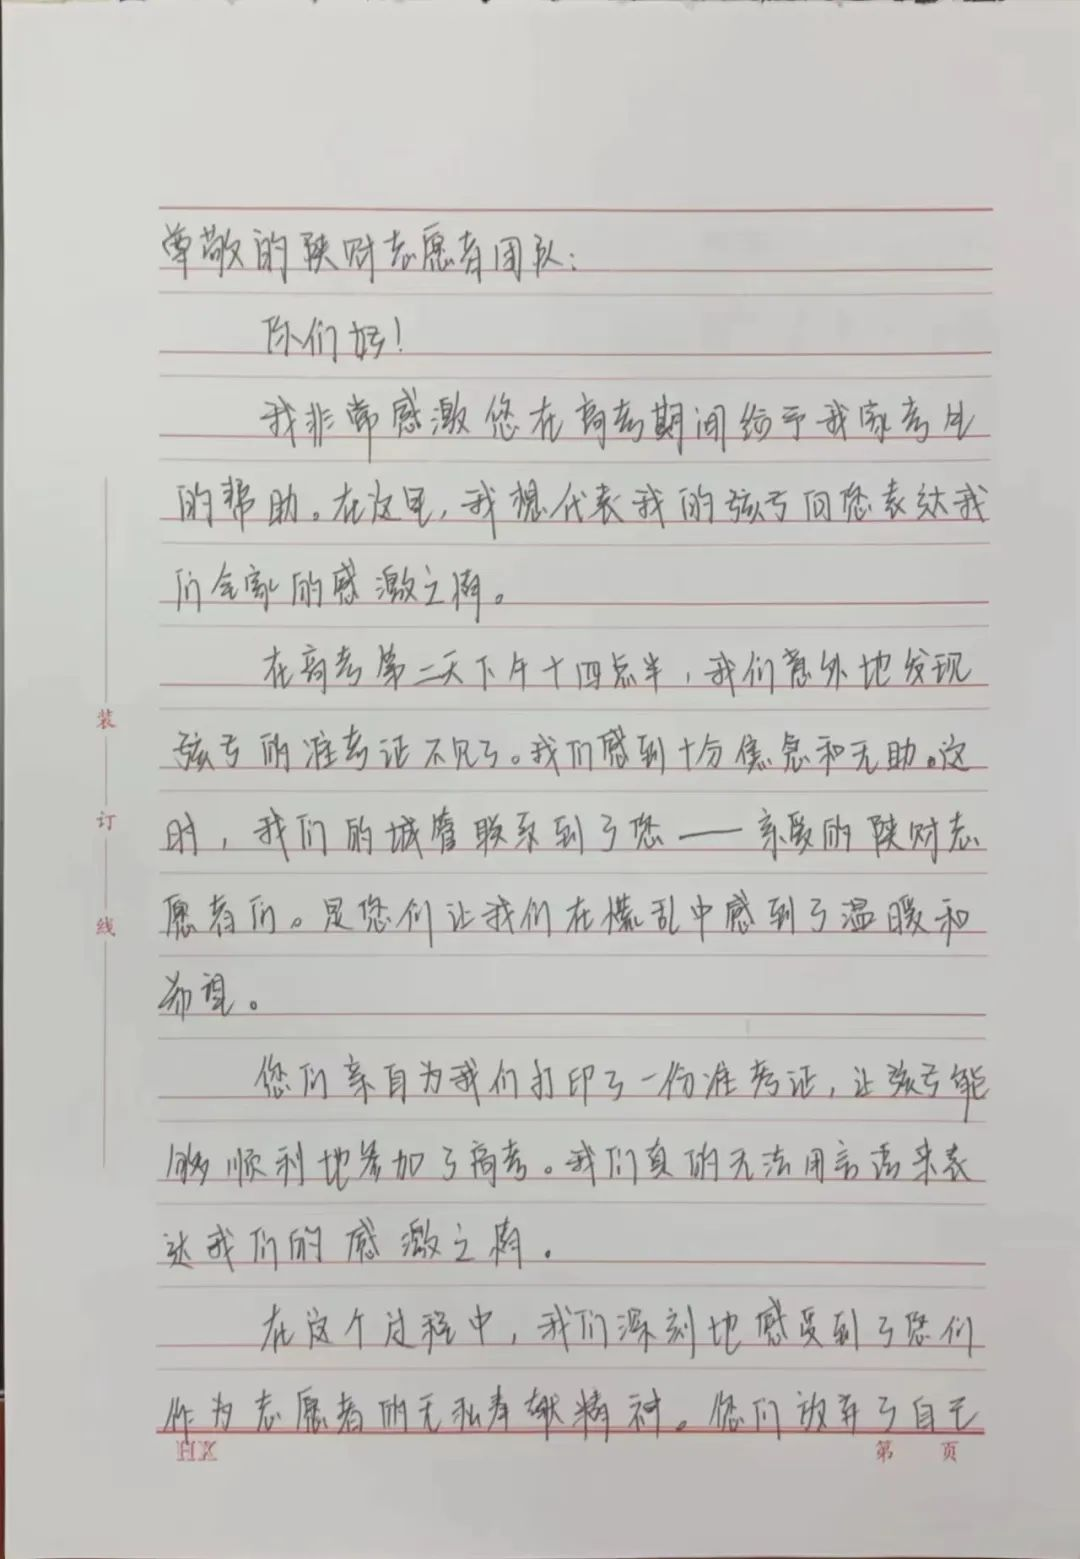 尊敬的陕财志愿者团队：
你们好！
我非常感激您在高考期间给予我家考生
的帮助。在这里，我想代表我的孩子向您表达我
们全家的感激之情。
在高考第二天下午十四点半，我们意外地发现
孩子的准考证不见了。我们感到十分焦急和无助。这
时，我们的城管联系到了您——亲爱的陕财志
愿者们。是您们让我们在慌乱中感到了温暖和
希望。
您们亲自为我们打印了一份准考证，让孩子能
够顺利地参加了高考。我们真的无法用言语来表
达我们的感激之情。
在这个过程中，我们深刻地感受到了您们
作为志愿者的无私奉献精神。您们放弃了自己
装
订
线
HX
第 页